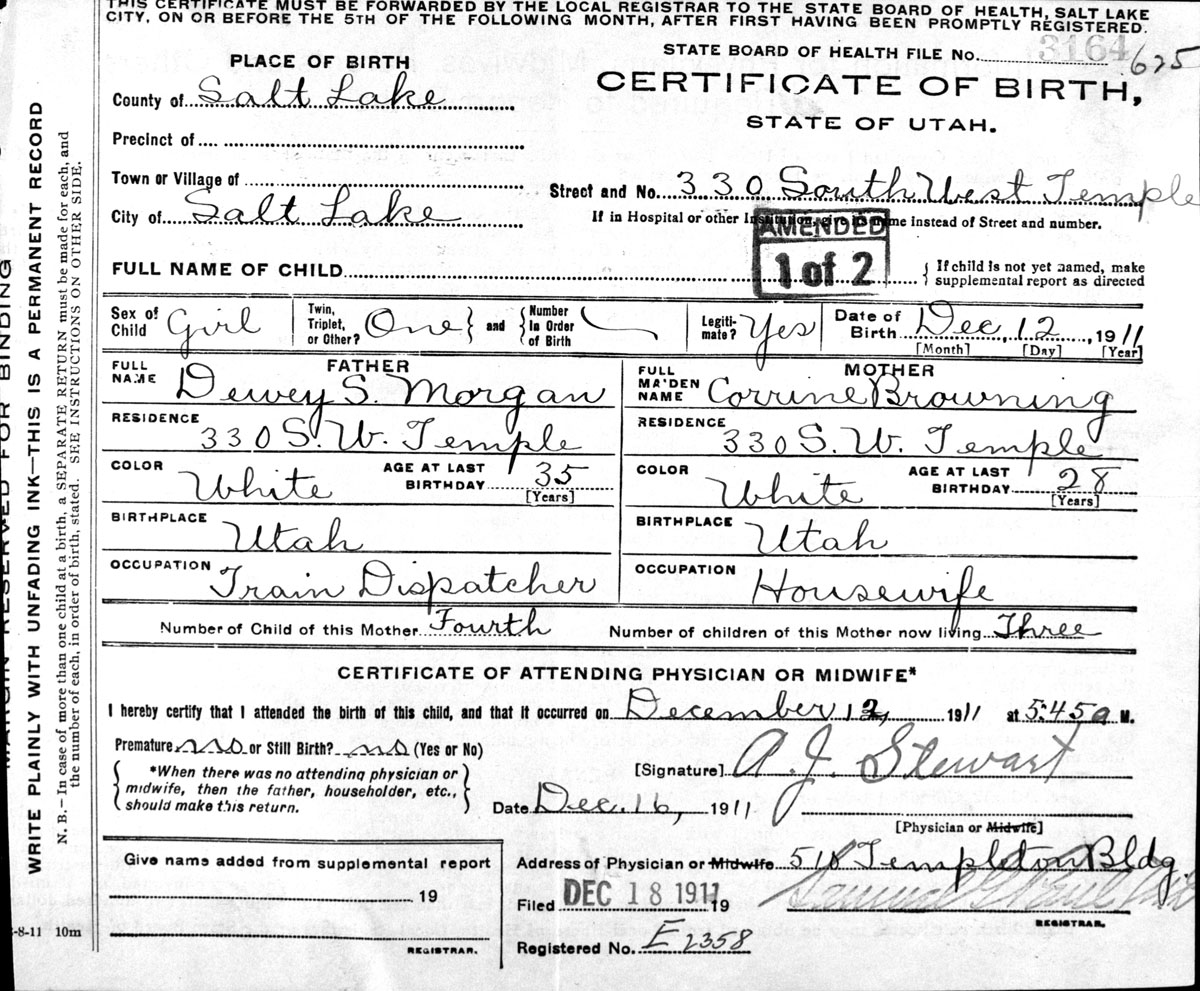 THIS CERTIFICATE MUST BE FORWARDED BY THE LOCAL REGISTRAR TO THE STATE BOARD OF HEALTH, SALT LAKE
CITY, ON OR BEFORE THE 5TH OF THE FOLLOWING MONTH, AFTER FIRST HAVING BEEN PROMPTLY REGISTERED.
STATE BOARD OF HEALTH FILE No. 3164 625
PLACE OF BIRTH
CERTIFICATE OF BIRTH,
STATE OF UTAH.
County of Salt Lake
Precinct of
Town or Village of
Street and No. 330 South West Temple
City of Salt Lake
If in Hospital or other Institution, give its name instead of Street and number.
AMENDED
1 of 2
FULL NAME OF CHILD
{ If child is not yet named, make
supplemental report as directed
Sex of Child Girl
Twin, Triplet, or Other? One } and { Number In Order of Birth
Legitimate? Yes
Date of Birth Dec, 12, 1911
[Month] [Day] [Year]
FATHER
FULL NAME Dewey S. Morgan
RESIDENCE
330 S. W. Temple
COLOR White
AGE AT LAST BIRTHDAY 35
[Years]
BIRTHPLACE
Utah
OCCUPATION
Train Dispatcher
MOTHER
FULL MAIDEN NAME Corrine Browning
RESIDENCE
330 S. W. Temple
COLOR White
AGE AT LAST BIRTHDAY 28
[Years]
BIRTHPLACE
Utah
OCCUPATION
Housewife
Number of Child of this Mother Fourth
Number of children of this Mother now living Three
CERTIFICATE OF ATTENDING PHYSICIAN OR MIDWIFE*
I hereby certify that I attended the birth of this child, and that it occurred on December 12, 1911 at 5:45 a M.
Premature no or Still Birth? no (Yes or No)
{ *When there was no attending physician or
midwife, then the father, householder, etc.,
should make this return. }
[Signature] A. J. Stewart
Date Dec. 16, 1911
[Physician or Midwife]
Give name added from supplemental report
19
REGISTRAR.
Address of Physician or Midwife 518 Templeton Bldg.
Filed DEC 18 1911 19
REGISTRAR.
Registered No. E 2358
-8-11 10m
MARGIN RESERVED FOR BINDING
WRITE PLAINLY WITH UNFADING INK—THIS IS A PERMANENT RECORD
N. B.—In case of more than one child at a birth, a SEPARATE RETURN must be made for each, and
the number of each, in order of birth, stated. SEE INSTRUCTIONS ON OTHER SIDE.